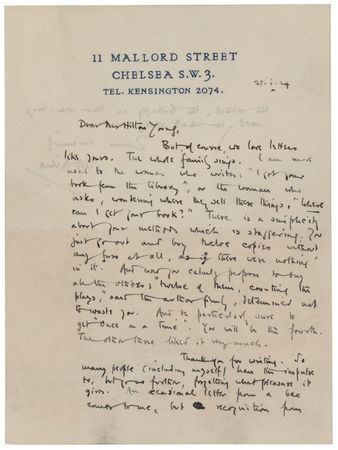 11 MALLORD STREET
CHELSEA S.W.3.
TEL. KENSINGTON 2074.
Dear Mrs Hilton Young,
But of course, we love letters
like yours. The whole family sings. I am more
used to the woman who writes "I got your
book from the Library", or the woman who
asks, wondering where they sell these things, "Where
can I get your book?" There is a simplicity
about your methods which is staggering. You
just go out and buy twelve copies without
any fuss at all, as if there were nothing
in it. And now you calmly propose to buy
all the others; "twelve of them, counting the
plays," said the author firmly, determined not
to waste you. And be particularly sure to
get "Once on a Time". You will be the fourth.
The other three liked it very much.
Thank you for writing. So
many people (including myself) have the impulse
to, but go no further, forgetting what pleasure it
gives. An occasional letter from a
comes to me, but recognition from